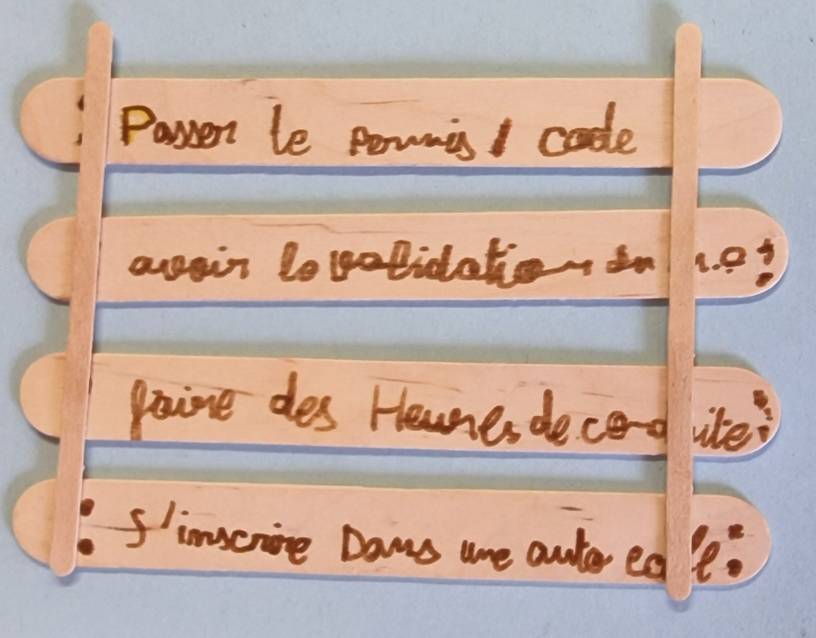 Passer le permis / code
avoir la validation du
faire des Heures de conduite
S'inscrire Dans une auto ecole